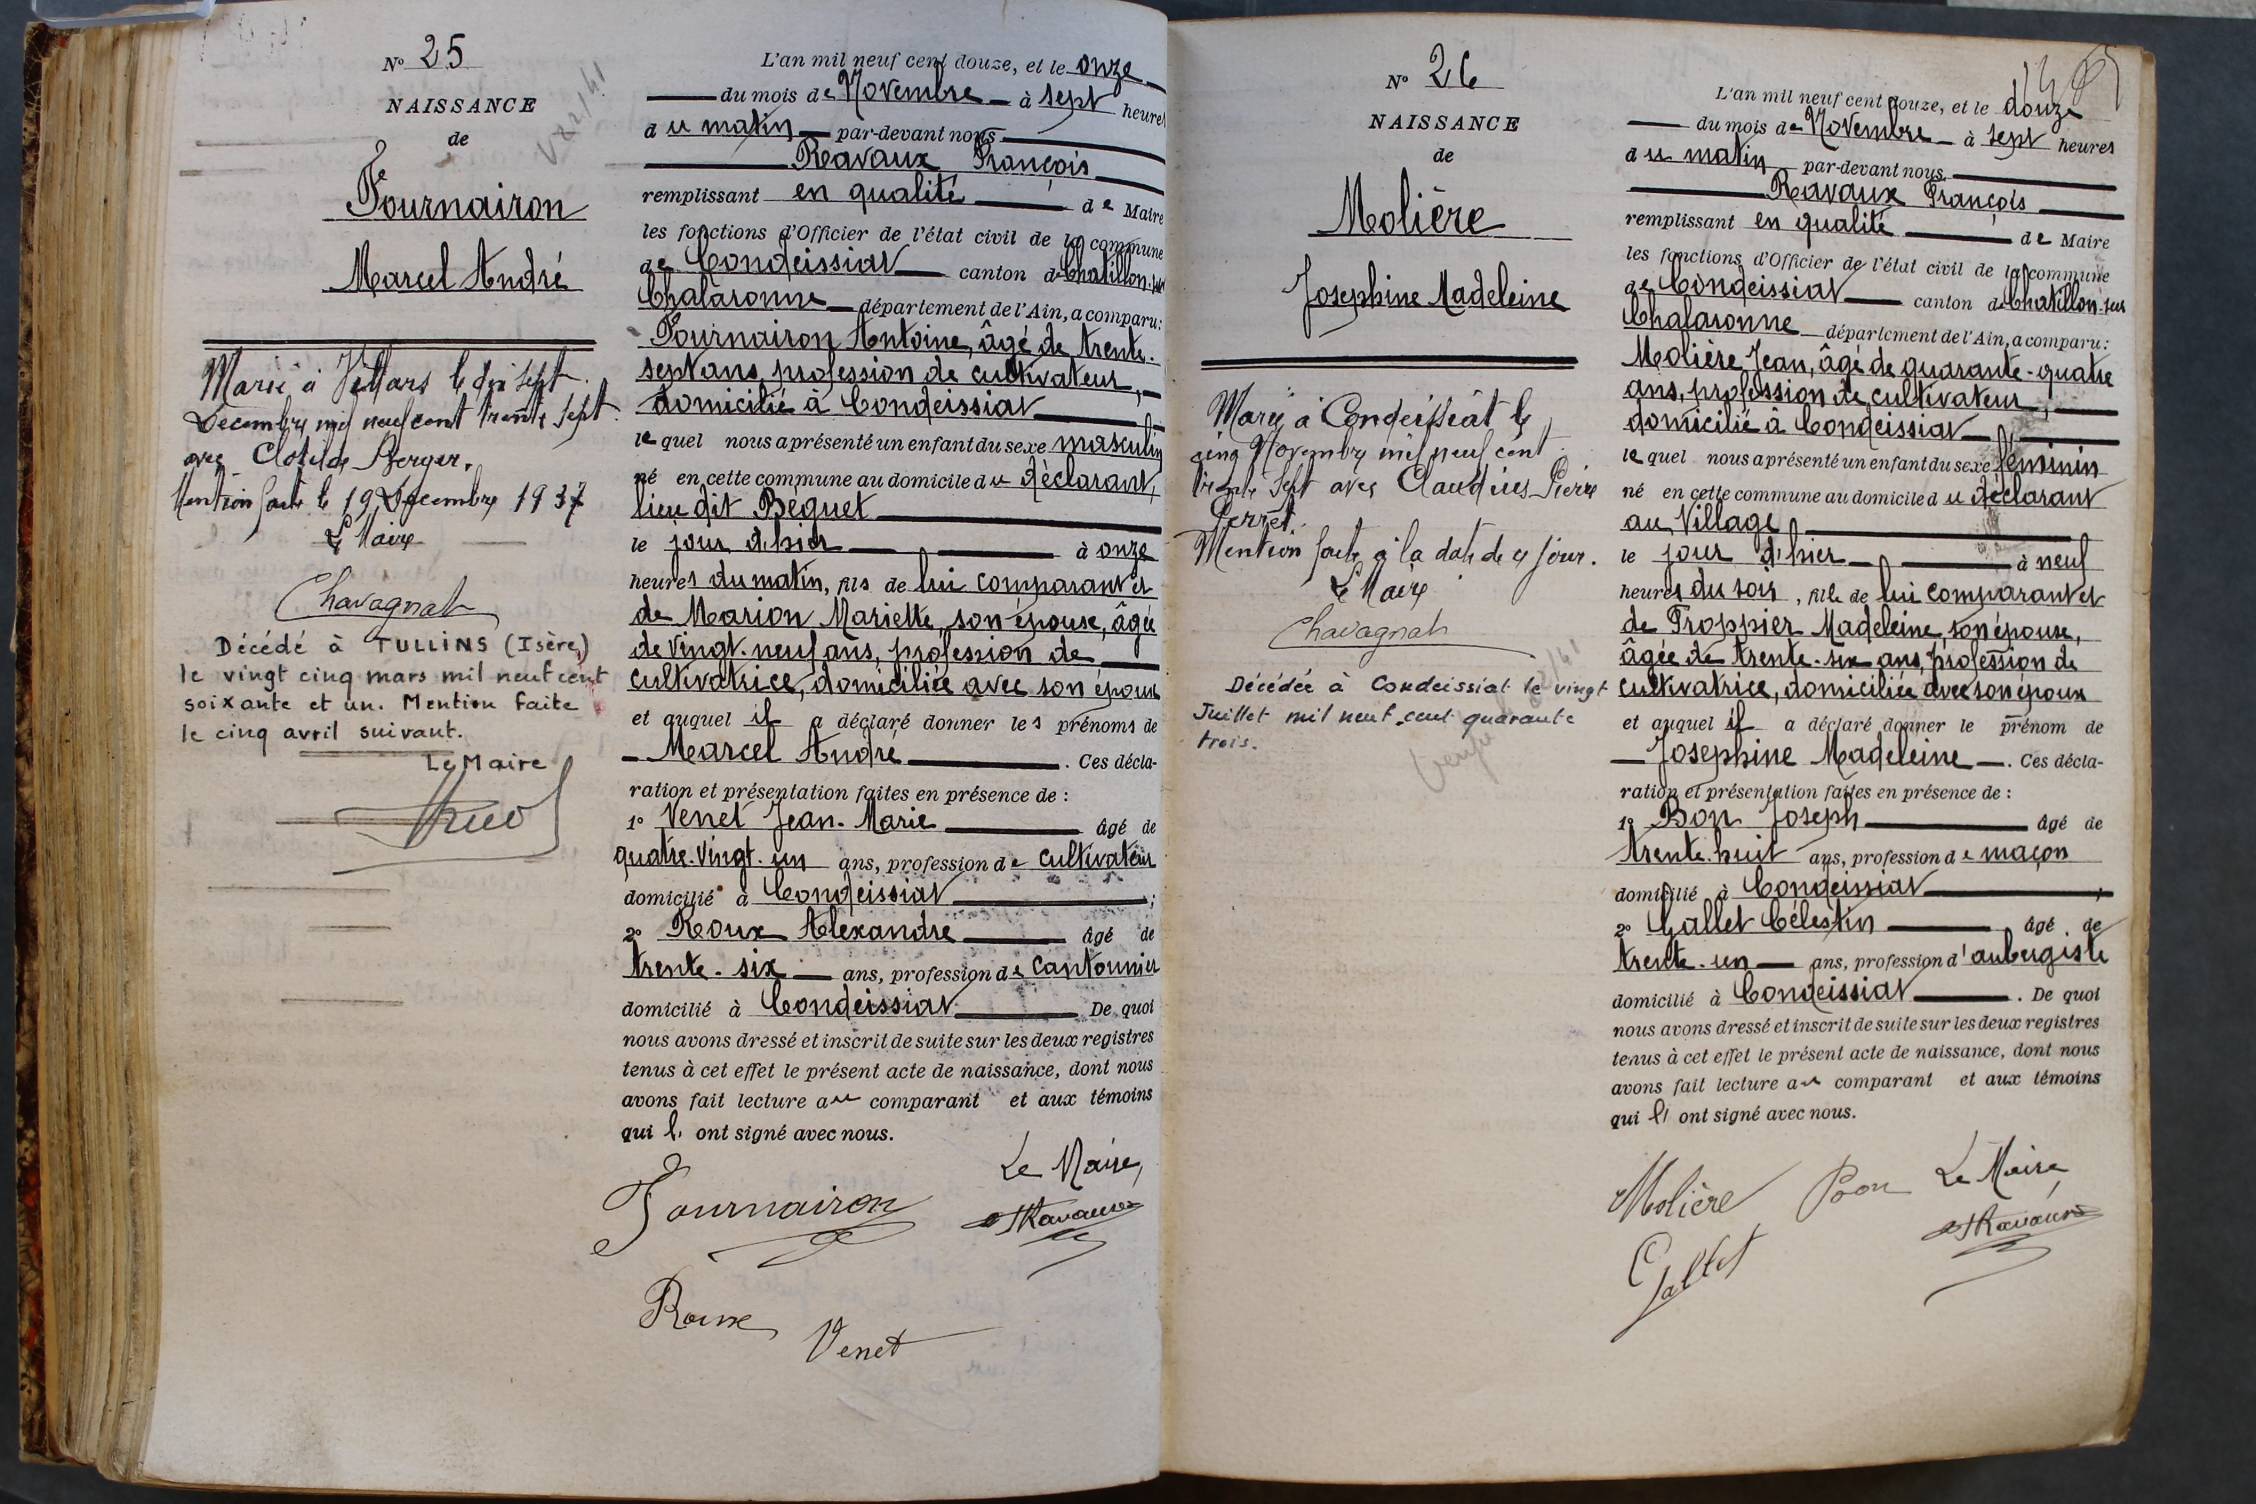 N° 25
NAISSANCE
de
Fournairon
Marcel André
Marié à Villars le dix sept
Décembre mil neuf cent trente sept
avec Clotilde Berger.
Mention faite le 19 Décembre 1937
Le Maire
Chavagnat
Décédé à TULLINS (Isère)
le vingt cinq mars mil neuf cent
soixante et un. Mention faite
le cinq avril suivant.
Le Maire
L'an mil neuf cent douze, et le onze
du mois de Novembre à sept heures
du matin par-devant nous
Ravaux François
remplissant en qualité de Maire
les fonctions d'Officier de l'état civil de la commune
de Condeissiat canton de Chatillon-sur
Chalaronne département de l'Ain, a comparu:
Fournairon Antoine, âgé de trente-
sept ans, profession de cultivateur,
domicilié à Condeissiat
lequel nous a présenté un enfant du sexe masculin
né en cette commune au domicile du déclarant,
lieu dit Béguet
le jour d'hier à onze
heures du matin, fils de lui comparant et
de Marion Mariette, son épouse, âgée
de vingt-neuf ans, profession de
cultivatrice, domiciliée avec son époux
et auquel il a déclaré donner les prénoms de
Marcel André. Ces décla-
ration et présentation faites en présence de :
1° Venet Jean-Marie âgé de
quatre-vingt-un ans, profession de cultivateur
domicilié à Condeissiat ;
2° Roux Alexandre âgé de
trente-six ans, profession de cantonnier
domicilié à Condeissiat De quoi
nous avons dressé et inscrit de suite sur les deux registres
tenus à cet effet le présent acte de naissance, dont nous
avons fait lecture au comparant et aux témoins
qui l' ont signé avec nous.
Le Maire,
Fournairon
Ravaux
Roux
Venet
N° 26
NAISSANCE
de
Molière
Josephine Madeleine
Mariée à Condeissiat le
cinq Novembre mil neuf cent
trente sept avec Claudius Pierre
Perret.
Mention faite à la date de ce jour.
Le Maire
Chavagnat
Décédée à Condeissiat le vingt
Juillet mil neuf cent quarante
trois.
L'an mil neuf cent douze, et le douze
du mois de Novembre à sept heures
du matin par-devant nous
Ravaux François
remplissant en qualité de Maire
les fonctions d'Officier de l'état civil de la commune
de Condeissiat canton de Chatillon-sur
Chalaronne département de l'Ain, a comparu:
Molière Jean, âgé de quarante-quatre
ans, profession de cultivateur,
domicilié à Condeissiat
lequel nous a présenté un enfant du sexe féminin
né en cette commune au domicile du déclarant
au Village
le jour d'hier à neuf
heures du soir, fille de lui comparant et
de Froppier Madeleine, son épouse,
âgée de trente-six ans, profession de
cultivatrice, domiciliée avec son époux
et auquel il a déclaré donner le prénom de
Josephine Madeleine. Ces décla-
ration et présentation faites en présence de :
1° Bon Joseph âgé de
trente-huit ans, profession de maçon
domicilié à Condeissiat ,
2° Gallet Célestin âgé de
trente-un ans, profession d'aubergiste
domicilié à Condeissiat. De quoi
nous avons dressé et inscrit de suite sur les deux registres
tenus à cet effet le présent acte de naissance, dont nous
avons fait lecture au comparant et aux témoins
qui l' ont signé avec nous.
Molière Bon Le Maire
Ravaux
Gallet